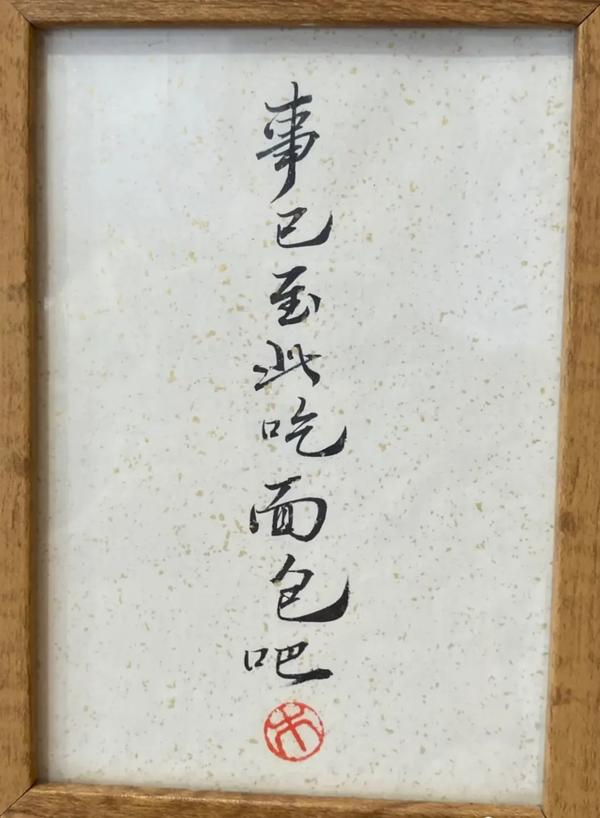 事已至此吃面包吧